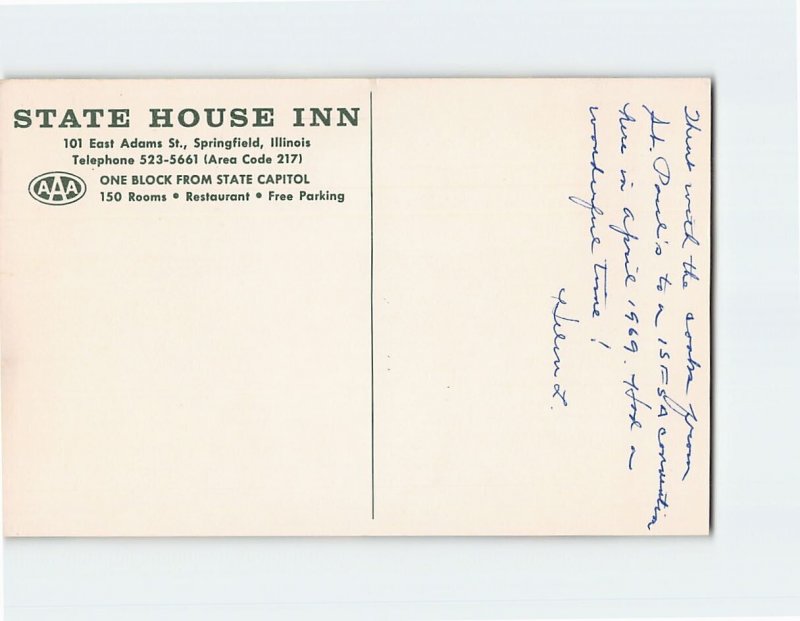 STATE HOUSE INN
101 East Adams St., Springfield, Illinois
Telephone 523-5661 (Area Code 217)
AAA
ONE BLOCK FROM STATE CAPITOL
150 Rooms • Restaurant • Free Parking
Went with the cooks from
St. Paul's to a ISFSA convention
here in April 1969. Had a
wonderful time!
Helen L.